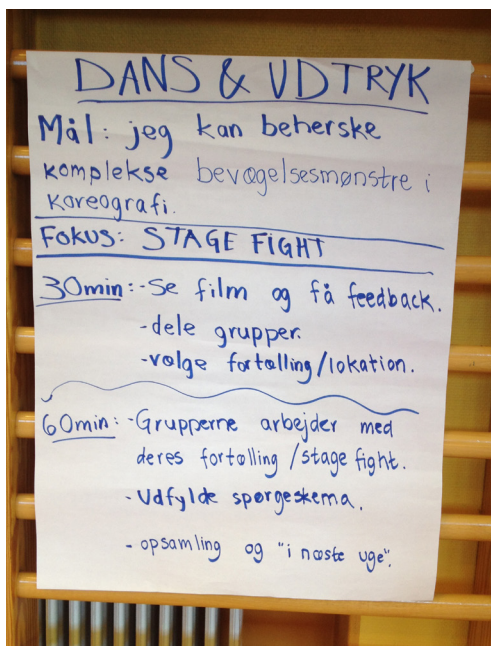 DANS & UDTRYK
Mål: jeg kan beherske
komplekse bevægelsesmønstre i
koreografi.
FOKUS: STAGE FIGHT
30min: -Se film og få feedback.
-dele grupper.
-vælge fortælling/lokation.
60min: -Grupperne arbejder med
deres fortælling/stage fight.
-Udfylde spørgeskema.
-opsamling og "i næste uge".